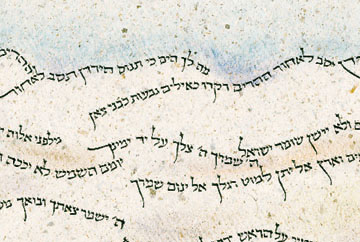 יסב לאחור ההרים רקדו כאילים גבעות כבני צאן
מה לך הים כי תנוס הירדן תסב לאחור
ולא יישן שומר ישראל
ה' צלך על יד ימינך
יומם השמש לא
מלפני אלוה
אל יתן למוט רגלך אל ינום שמרך
ה' ישמר צאתך ובואך
על הראש